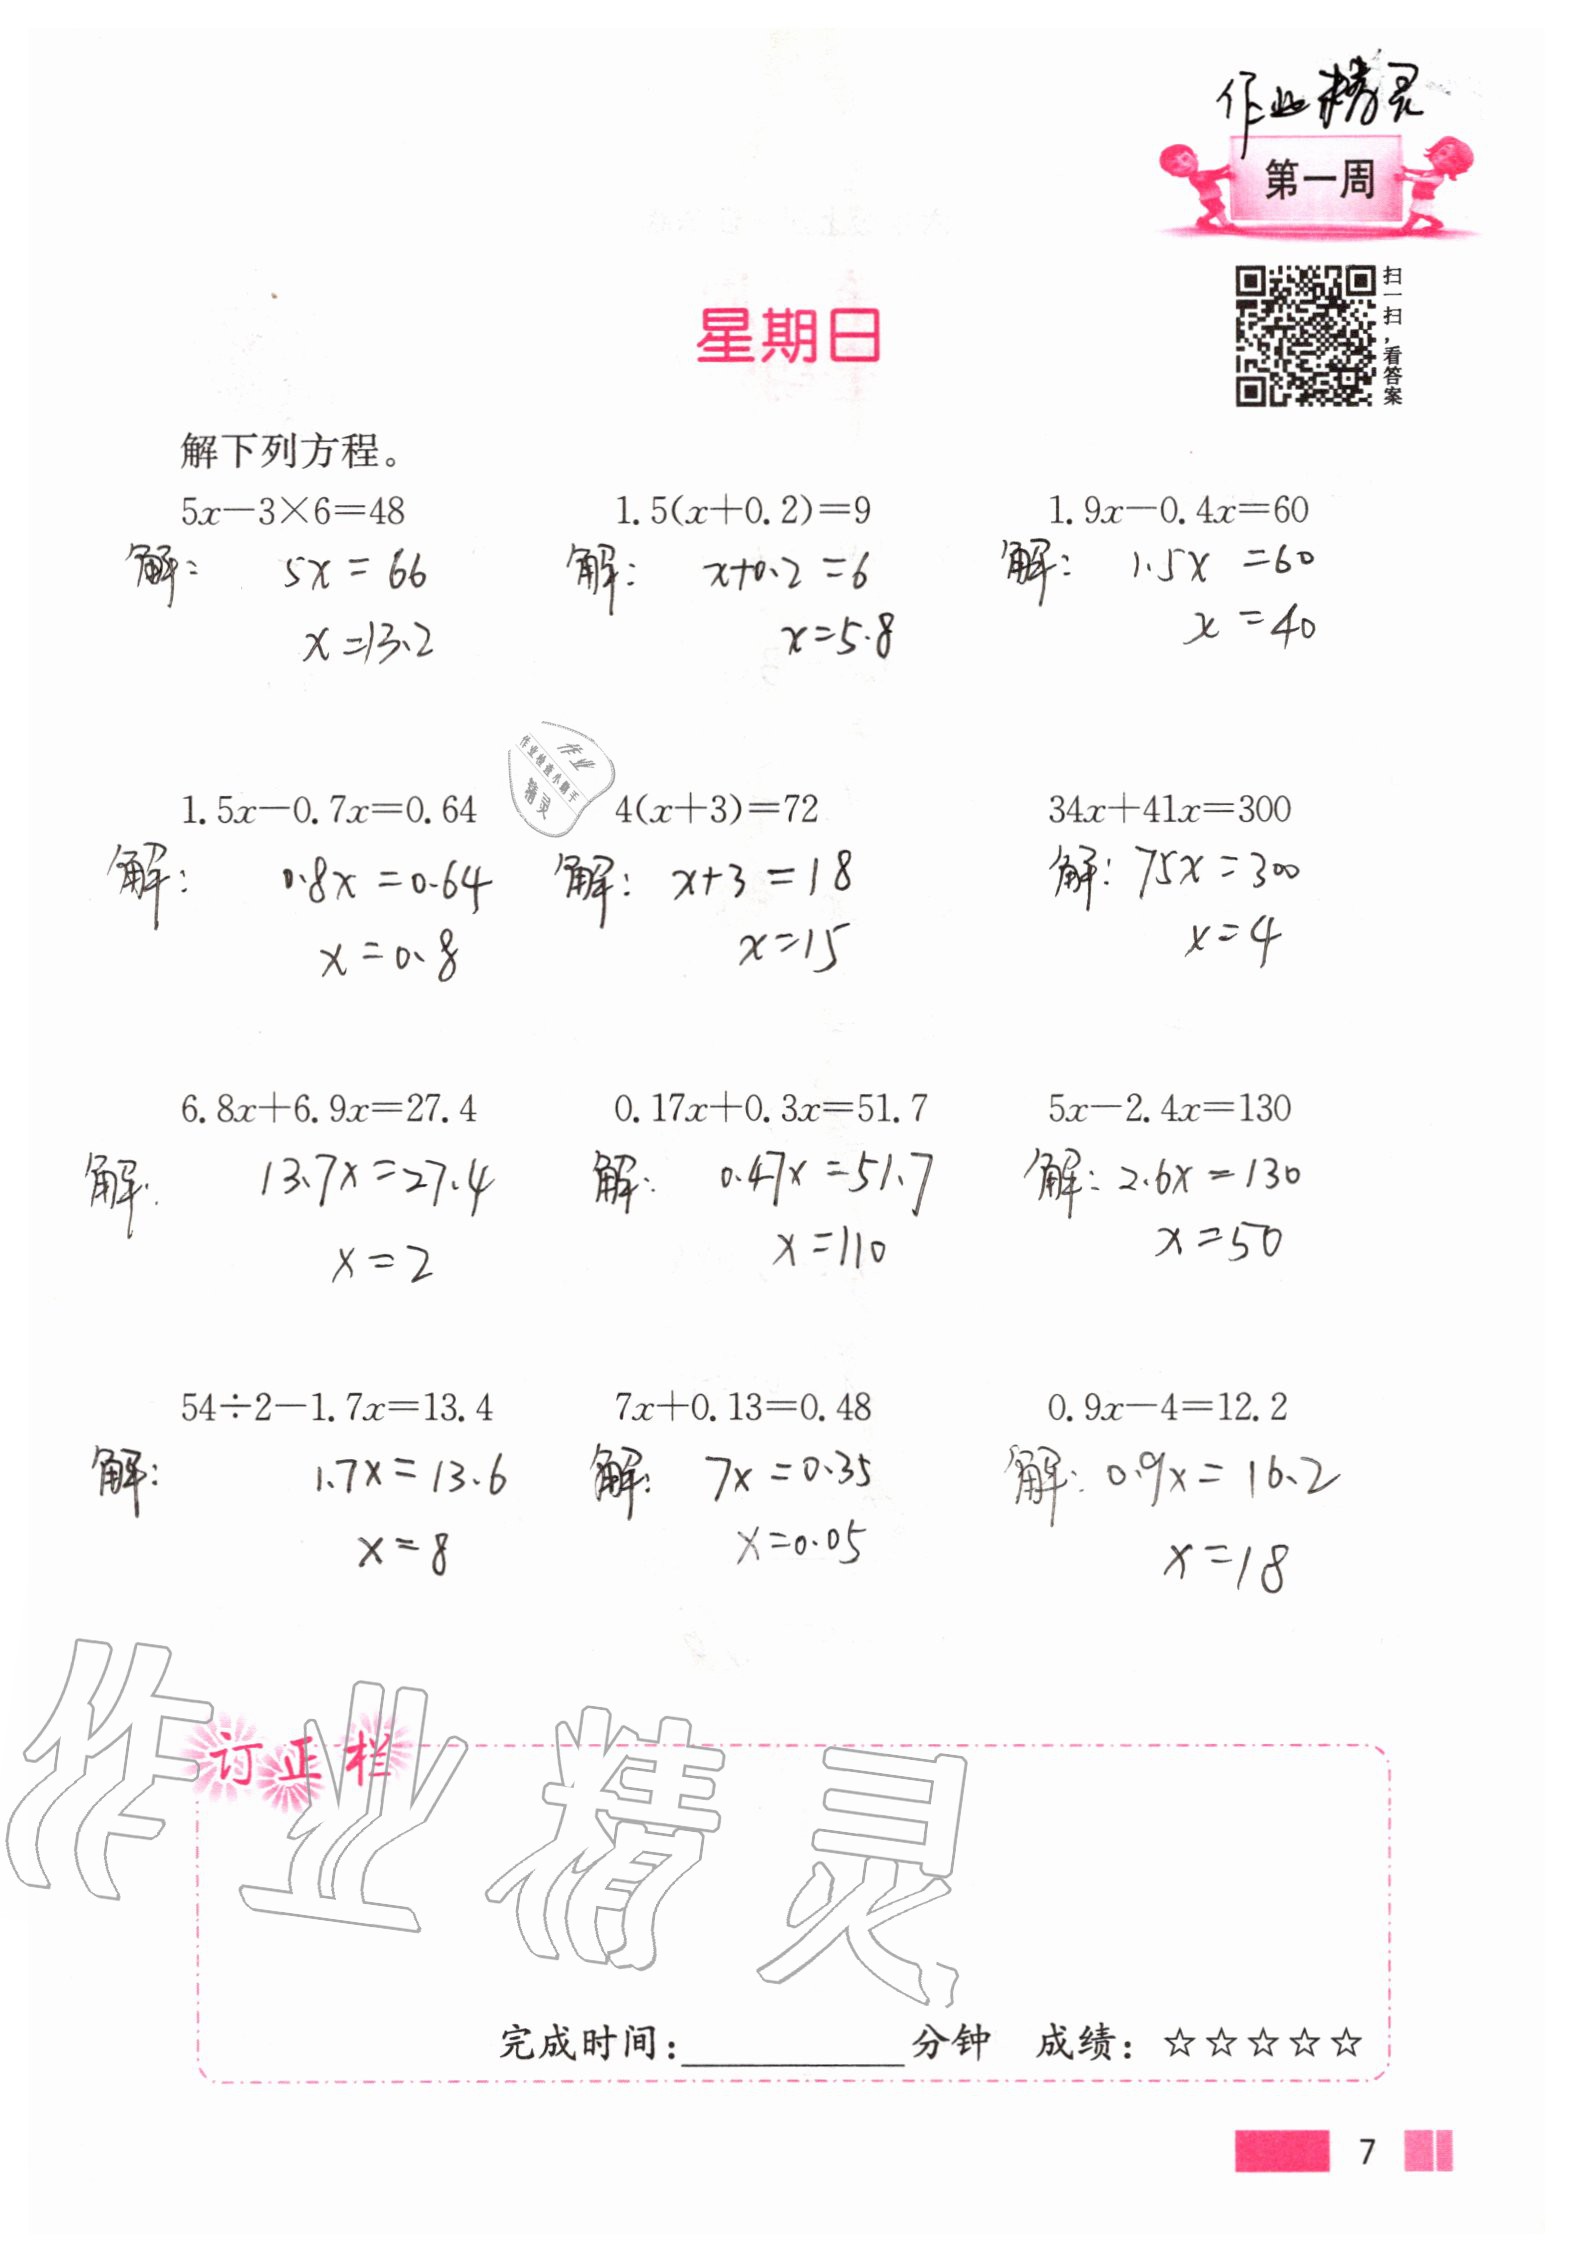 作业精灵
第一周
扫一扫,看答案
星期日
解下列方程。
5x-3×6=48 1.5(x+0.2)=9 1.9x-0.4x=60
解: 5x=66 解: x+0.2=6 解: 1.5x=60
x=13.2 x=5.8 x=40
作业
作业检查小助手
精灵
1.5x-0.7x=0.64 4(x+3)=72 34x+41x=300
解: 0.8x=0.64 解: x+3=18 解: 75x=300
x=0.8 x=15 x=4
6.8x+6.9x=27.4 0.17x+0.3x=51.7 5x-2.4x=130
解: 13.7x=27.4 解: 0.47x=51.7 解: 2.6x=130
x=2 x=110 x=50
54÷2-1.7x=13.4 7x+0.13=0.48 0.9x-4=12.2
解: 1.7x=13.6 解: 7x=0.35 解: 0.9x=16.2
x=8 x=0.05 x=18
作业精灵
订正栏
完成时间:________分钟 成绩:☆☆☆☆☆
7